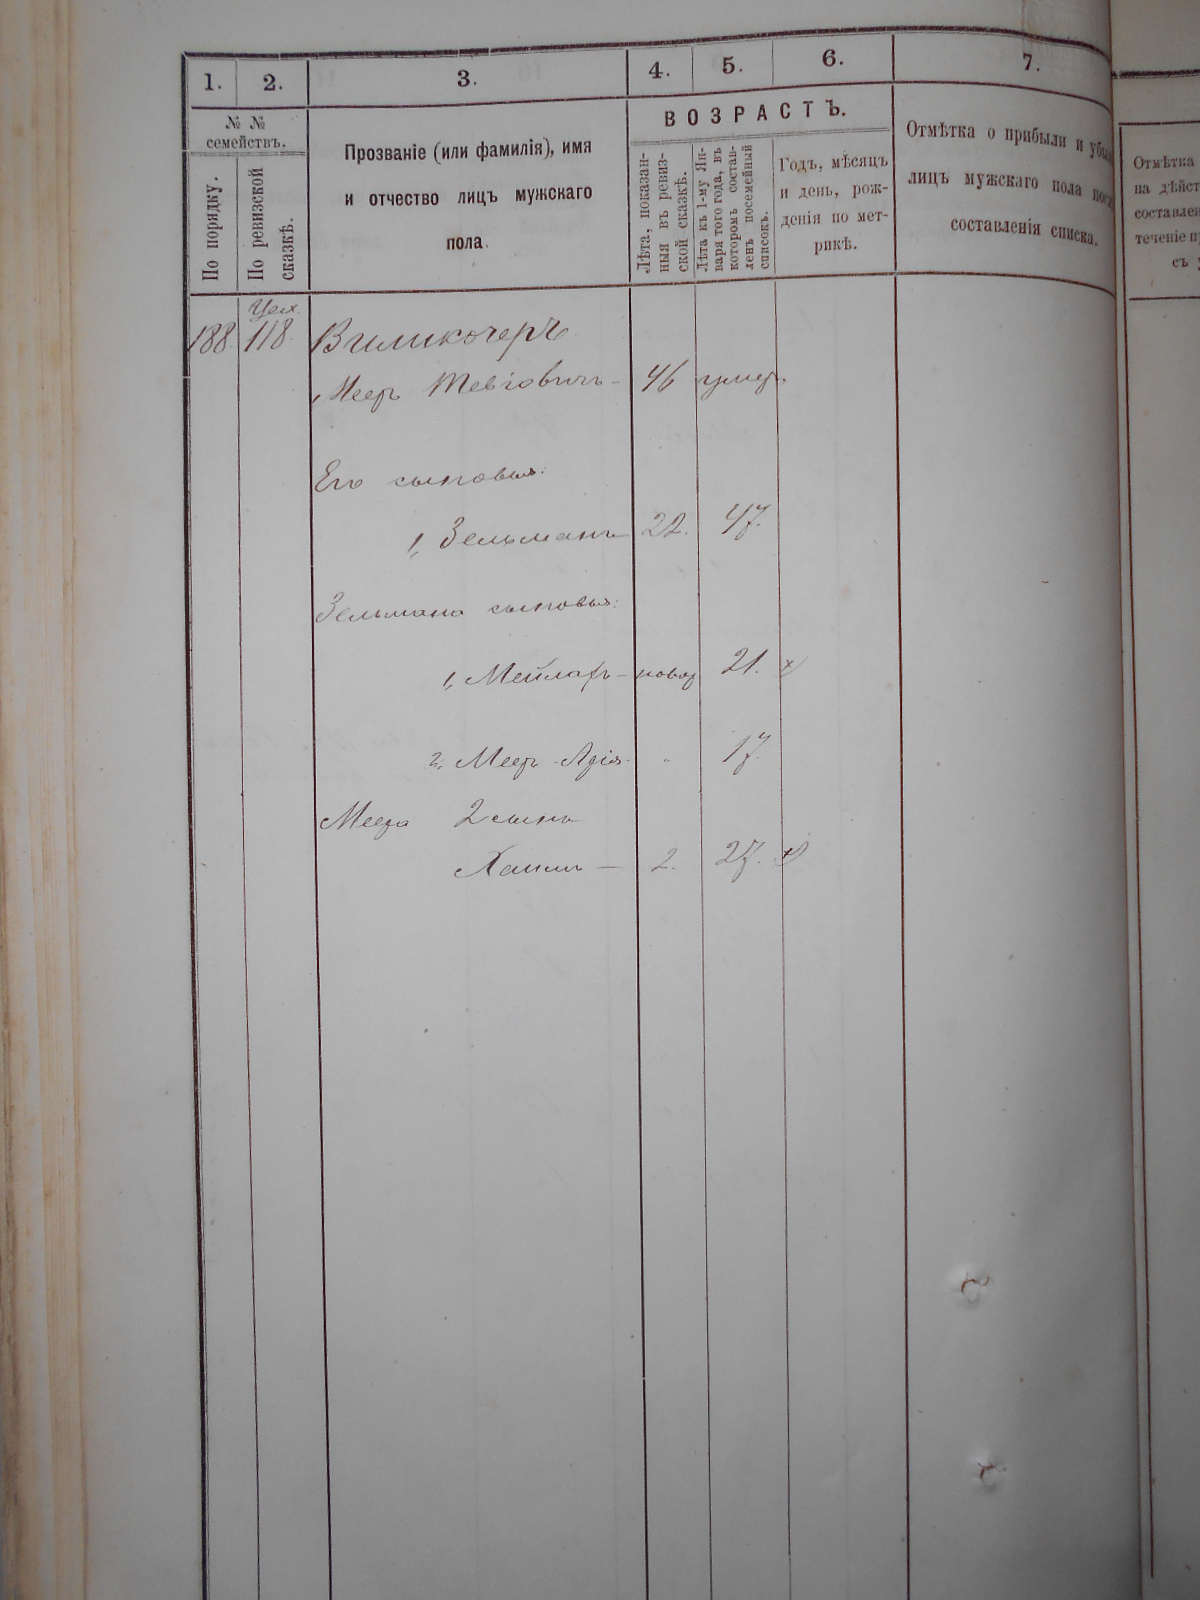 1. 2. 3. 4. 5. 6. 7.
№ №
семействъ.
По порядку.
По ревизской
сказкѣ.
Прозваніе (или фамилія), имя
и отчество лицъ мужскаго
пола.
ВОЗРАСТЪ.
Лѣта, показан-
ныя въ ревиз-
ской сказкѣ.
Лѣта къ 1-му Ян-
варя того года, въ
которомъ состав-
ленъ посемейный
списокъ.
Годъ, мѣсяцъ
и день, рож-
денія по мет-
рикѣ.
Отмѣтка о прибыли и убы
лицъ мужскаго пола пос
составленія списка.
Отмѣтка
на дѣйст
составлен
теченіе п
съ
Цех.
188. 118.
Меер Тевіовичъ 46 умер.
Его сыновья:
1, Зельманъ 22. 47.
Зельмана сыновья:
1, Мейлахъ новор 21. х
2, Меер 17.
Меера 2 сынъ
Хаимъ 2. 27. х